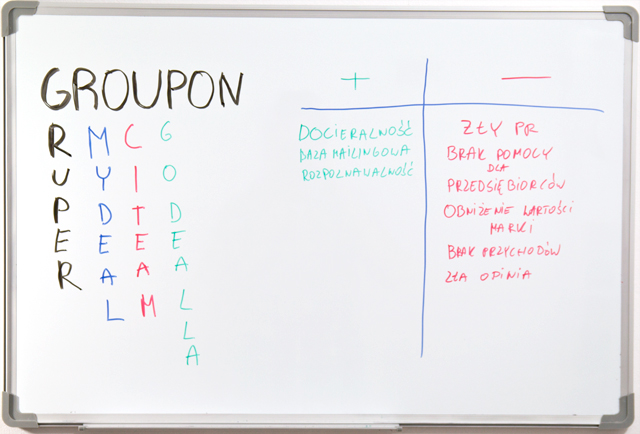 GROUPON
RUPER
MYDEAL
CITEAM
GODEALLA
+
DOCIERALNOŚĆ
BAZA MAILINGOWA
ROZPOZNAWALNOŚĆ
—
ZŁY PR
BRAK POMOCY
DLA
PRZEDSIĘBIORCÓW
OBNIŻENIE WARTOŚCI
MARKI
BRAK PRZYCHODÓW
ZŁA OPINIA